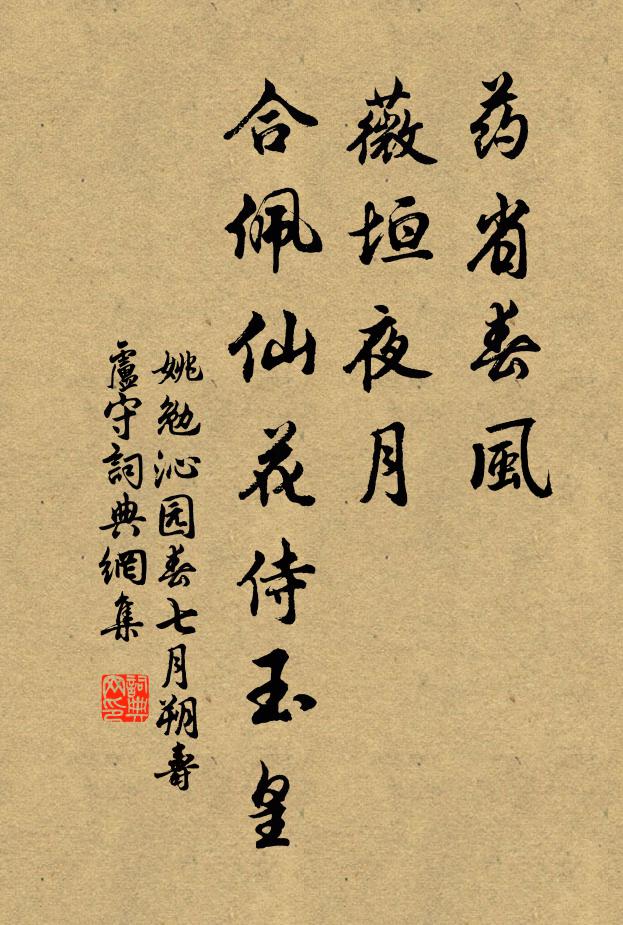 药省春風
薇垣夜月
合佩仙花侍玉皇
姚勉沁园春七月朔壽
盧守詞典網集
詞典網印